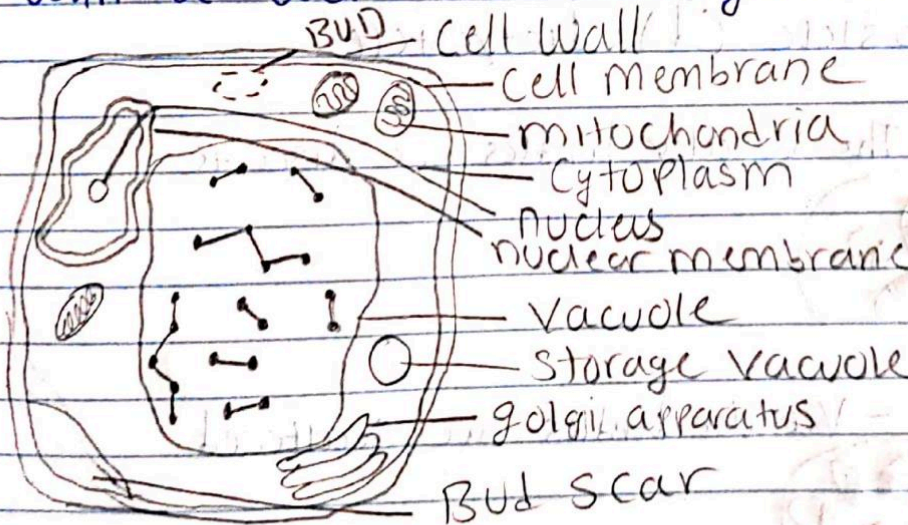 BUD
Cell Wall
Cell membrane
mitochondria
Cytoplasm
nucleus
nuclear membrane
Vacuole
Storage Vacuole
golgi apparatus
Bud Scar